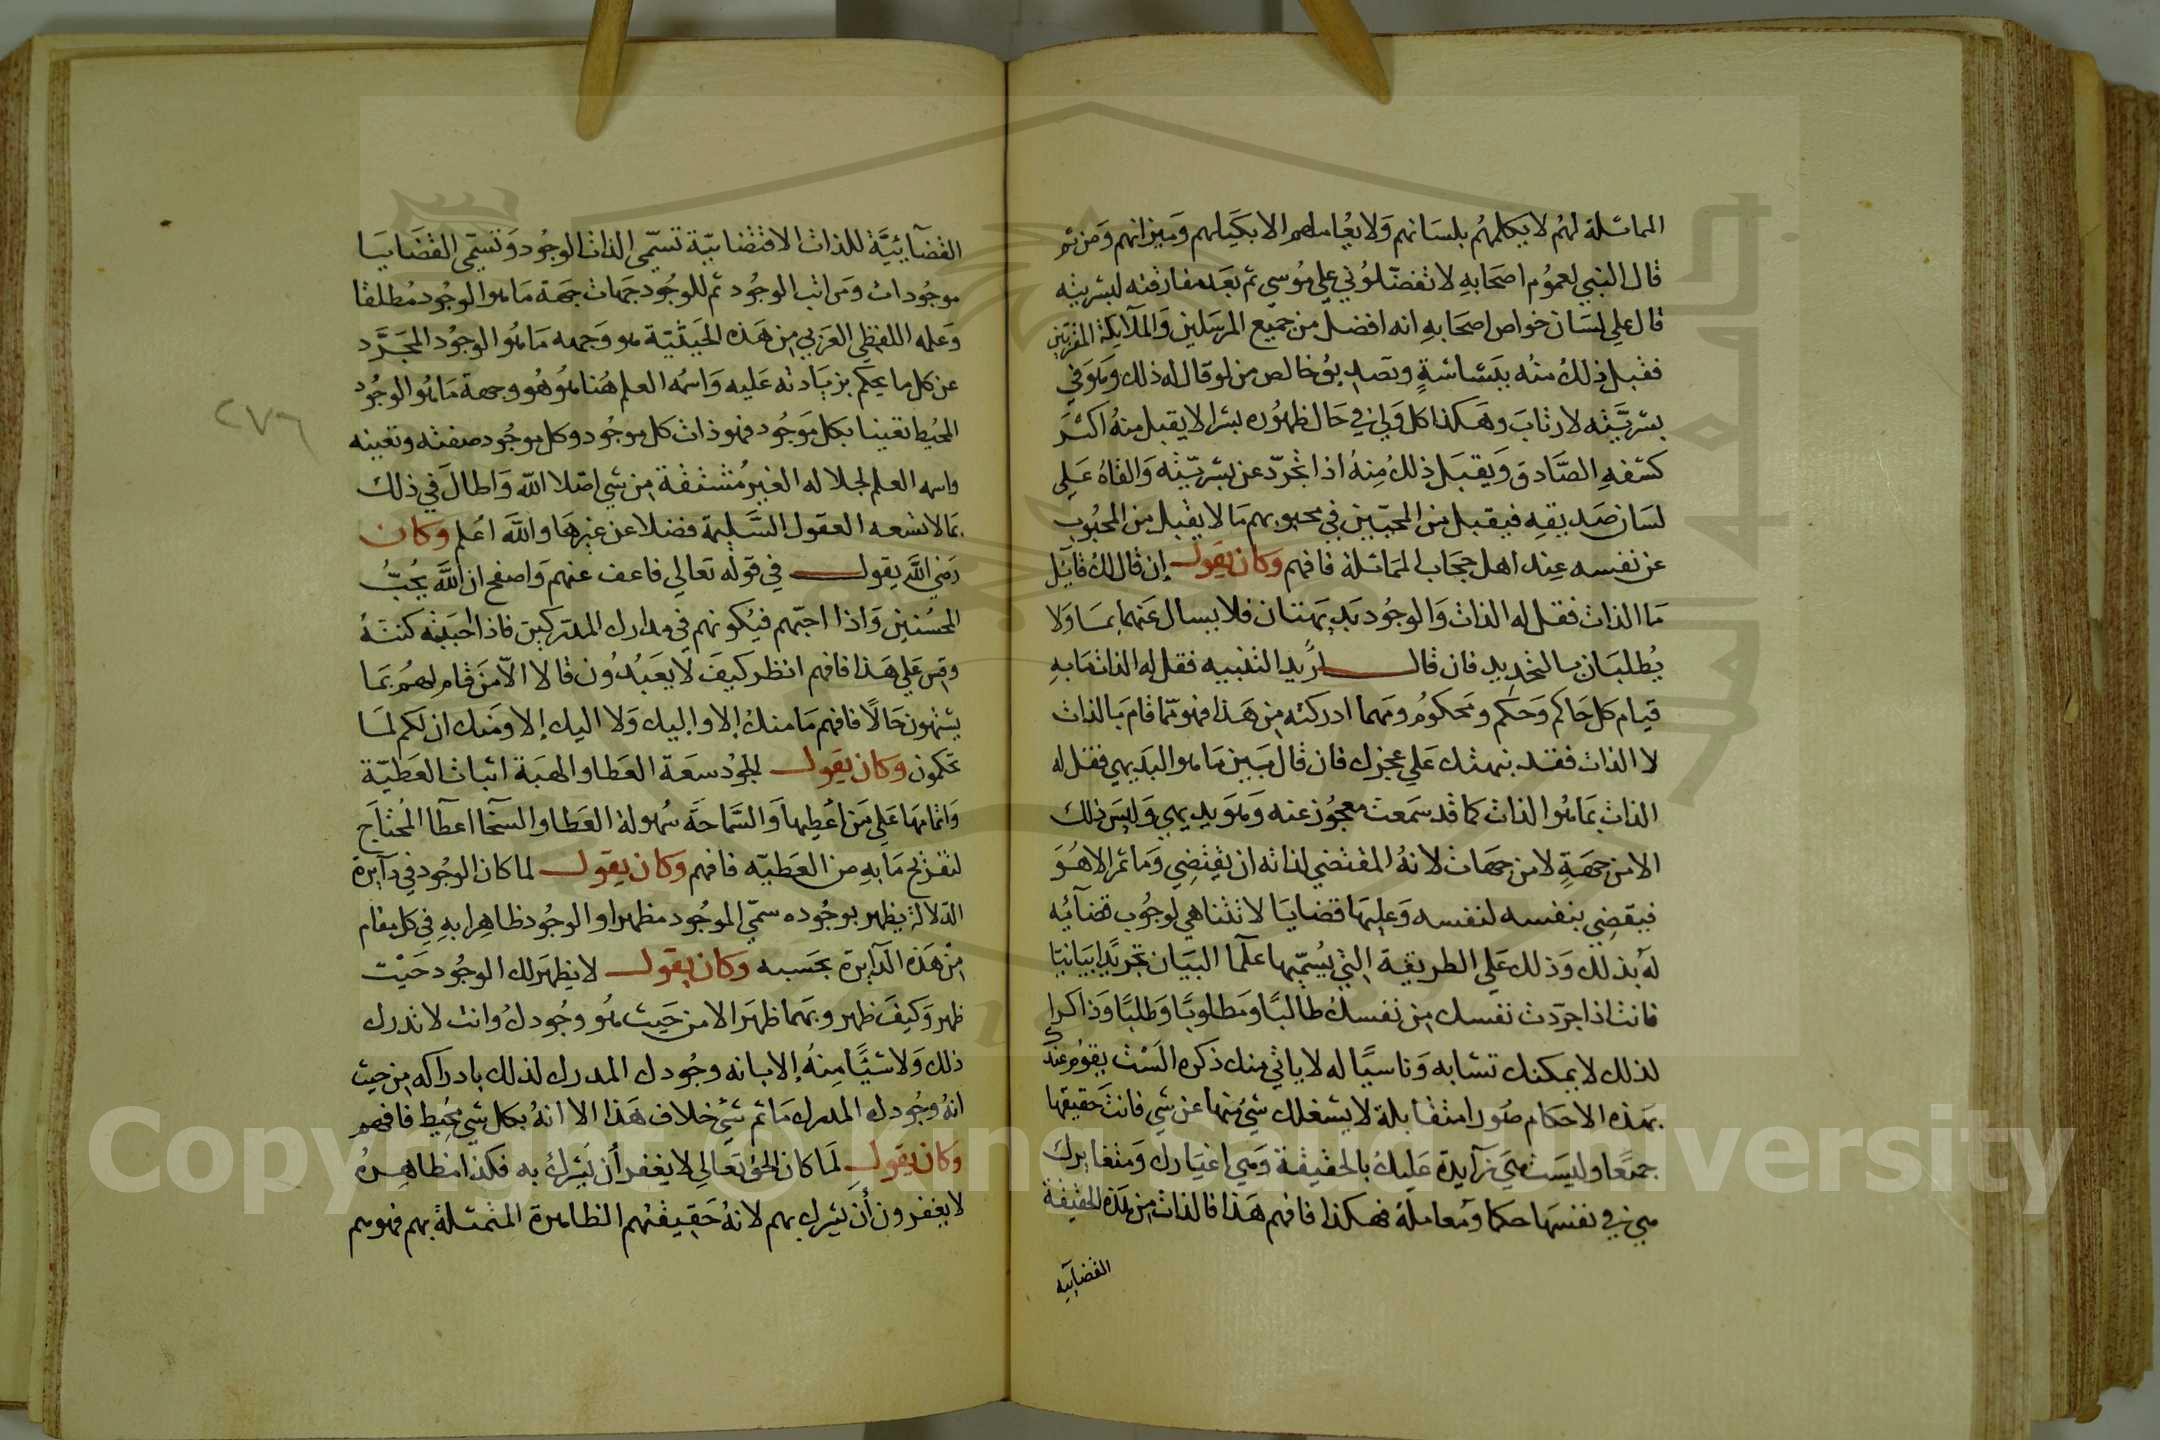 المماثلة لهم لا يكلمهم بلسانهم ولا يعاملهم الا بكيلهم وميزانهم ومن ثم
قال النبي لعموم اصحابه لا تفضلوني علي موسي ثم بعد مفارقته لبشريته
قال علي لسان خواص اصحابه انه افضل من جميع المرسلين والملآيكة المقربين
فقبل ذلك منه ببشاشةٍ وتصديق خالص من لو قال له ذلك وهو في
بشريته لارتاب وهكذا كل ولي في حال ظهوره بشرا لا يقبل منه اكثر
كشفه الصادق ويقبل ذلك منه اذا تجرد عن بشريته والقاه علي
لسان صديقه فيقبل من المحبين في محبوبهم ما لا يقبل من المحبوب
عن نفسه عند اهل حجاب المماثلة فافهم وكان يقول إن قال لك قآيل
ما الذات فقل له الذات والوجود بديهتان فلا يسال عنهما بما ولا
يطلبان بالتحديد فان قال اريد التنبيه فقل له الذات ما به
قيام كل حاكم وحكم ومحكوم ومهما ادركته من هذا فهو مما قام بالذات
لا الذات فقد نبهتك علي عجزك فان قال بين ما هو البديهي فقل له
الذات بما هو الذات كما قد سمعت معجوز عنه وهو بديهي وليس ذلك
الا من جهةٍ لا من جهات لانه المقتضي لذاته ان يقتضي وما ثم الا هو
فيقضي بنفسه لنفسه وعليها قضايا لا تتناهي لوجوب قضآئه
له بذلك وذلك علي الطريقة التي يسميها علما البيان تجريدا بيانيا
فانت اذا جردت نفسك من نفسك طالبًا ومطلوبًا وطلبًا وذاكرا
لذلك لا يمكنك تشابه وناسيًا له لا ياتي منك ذكره الست يقوم عند
بهذه الاحكام صورا متقابلة لا يشغلك شيء منها عن شي فانت حقيقتها
جمعًا وليست هي زآيدة عليك بالحقيقة وهي اغيارك ومتغايرك
هي في نفسها حكما ومعاملة فهكذا فافهم هذا فالذات من هذه الحقيقة
القضآيية
القضآيئيّة للذات الاقتضايية تسمي الذات الوجود وتسمي القضايا
موجودات ومراتب الوجود ثم للوجود جهات جهة ما هو الوجود مطلقا
وعلمه اللفظي العربي من هذه الحيثية هو وجهة ما هو الوجود المجرد
عن كل ما يحكم بزيادته عليه واسمه العلم هنا هو هو وجهة ما هو الوجود
المحيط تعينا بكل موجود فهو ذات كل موجود وكل موجود صفته وتعينه
واسمه العلم لجلاله الغير مشتقة من شي اصلا الله واطال في ذلك
بما لا تسعه العقول السليمة فضلا عن غيرها والله اعلم وكان
رضي الله يقول في قوله تعالي فاعف عنهم واصفح ان الله يحب
المحسنين واذا احبهم فيكونهم في مدارك المدركين فاذا احببته كنته
وقس علي هذا فافهم انظر كيف لا يعبدون قالا الا من قام لهم بما
يشتهون حالًا فافهم ما منك إلا واليك ولا اليك إلا ومنك ان لكم لما
تحكمون وكان يقول الجود سعة العطا والهبة اثبات العطية
واتمامها علي من اعطيها والسماحة سهولة العطا والسخآ اعطآ المحتاج
لتفريح ما به من العطية فافهم وكان يقول لما كان الوجود في دآيرة
الدلالة يظهر بوجوده سمي الموجود مظهرا والوجود ظاهرا به في كل مقام
من هذه الدآيرة بحسبه وكان يقول لا يظهر لك الوجود حيث
ظهر وكيف ظهر وبهما ظهر الا من حيث هو وجودك وانت لا تدرك
ذلك ولا شيًا منه إلا بانه وجودك المدرك لذلك بادراكه من حيث
انه وجودك المدرك ما ثم شي خلاف هذا الا انه بكل شي محيط فافهم
وكان يقول لما كان الحق تعالي لا يغفر أن يشرك به فكذا مظاهره
لا يغفرون أن يشرك بهم لانه حقيقتهم الظاهرة المتمثلة بهم فهو هم
٢٧٦
Copyright © King Saud University